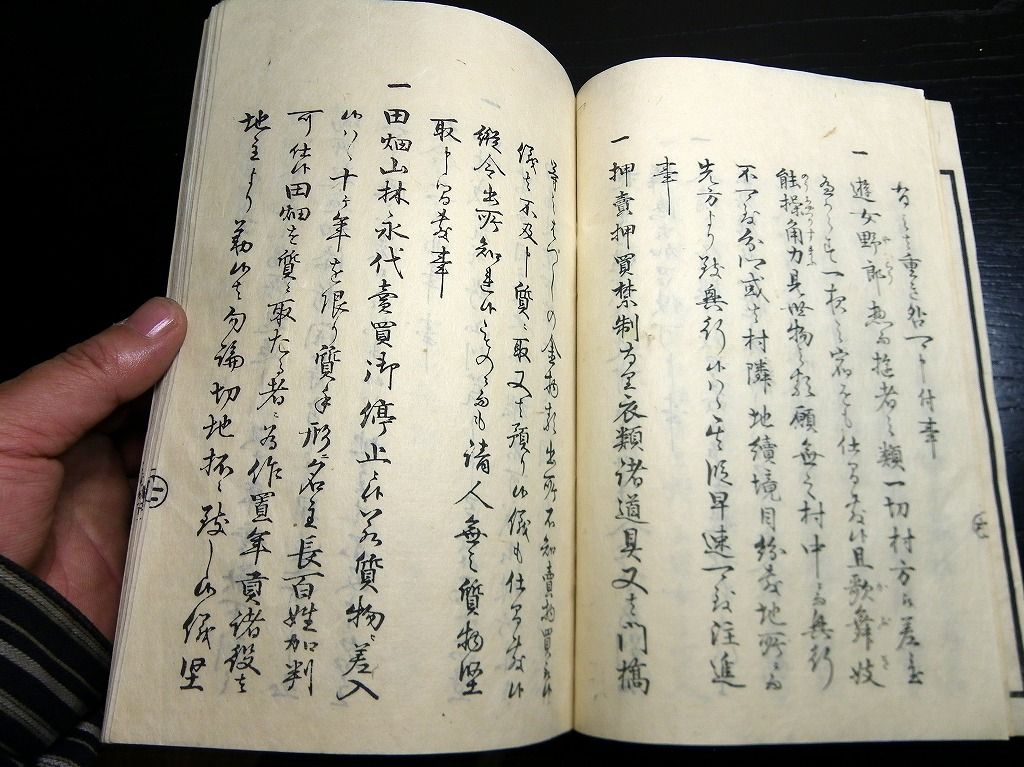 重き
一 遊女野郎惣而遊者之類一切村方江差置
一夜之宿をも仕間敷候且歌舞妓
能操角力見世物之類願無之村中ニ而興行
不 或者村隣地續境目紛敷地所ニ而
先方より致興行候ハヽ 早速可致注進
事
一 押賣押買禁制 衣類諸道具又者門橋
等 はづしの金物類出所不知賣物買取候
儀者不及申質ニ取又者預り候儀も仕間敷候
縱令出所知連候もの而も請人無之質物堅
取申間敷事
一 田畑山林永代賣買御停止候若質物ニ差入
候ハヽ十ケ年を限り質手形ニ名主長百姓加判
可仕候田畑を質ニ取たる者ニ為作置年貢諸役者
地主より勤候者勿論切地抔ニ致し候儀堅
二